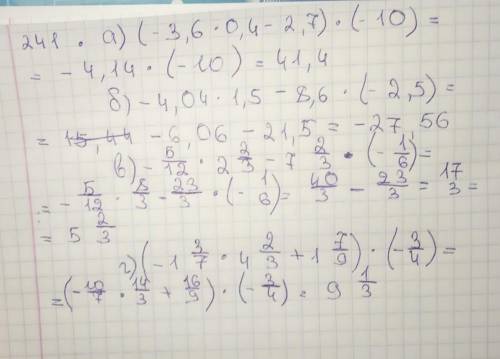 241. а) (-3,6·0,4-2,7)·(-10)=
= -4,14·(-10)=41,4
б) -4,04·1,5-8,6·(-2,5)=
= 15,44 -6,06-21,5=-27,56
в) -5/12·2 2/3-7 2/3·(-1/6)=
= -5/12·8/3-23/3·(-1/6)= 40/3-23/3= 17/3=
= 5 2/3
г) (-1 3/7·4 2/3+1 7/9)·(-3/4)=
=(-10/7·14/3+16/9)·(-3/4)= 9 1/3